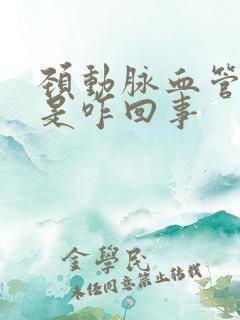 頚動脉血管
是咋回事
金學民
未经同意禁止转载